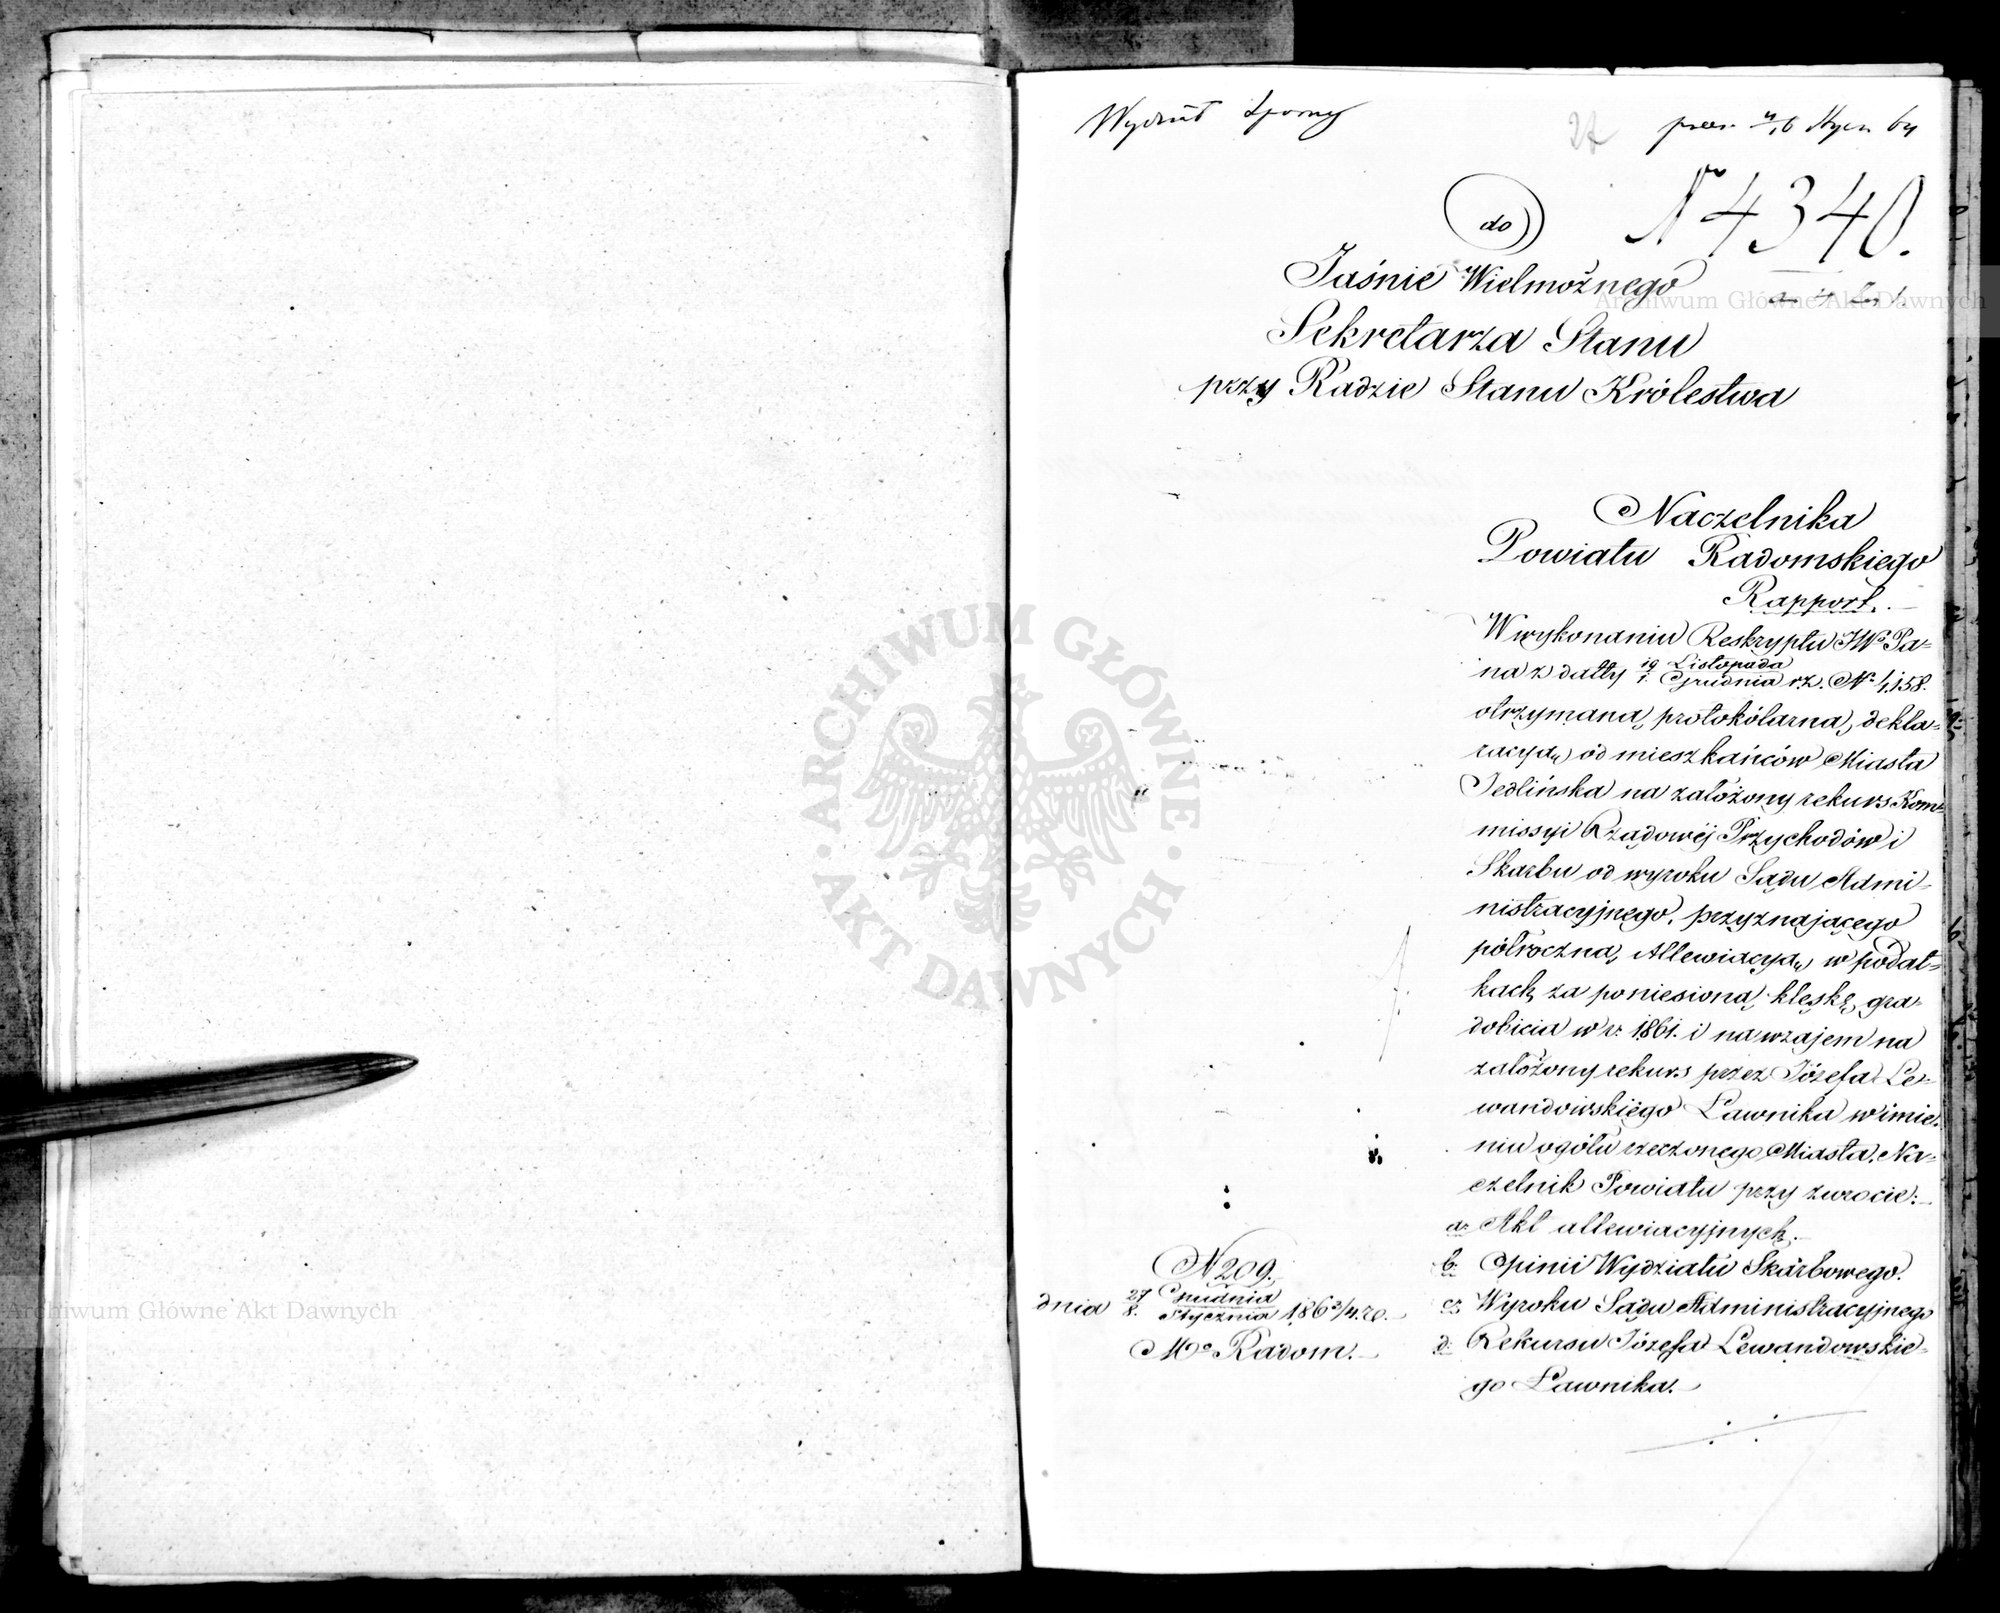 Wydział Sporny
27
prez. 4/16 Stycz 64
N 4340.
do
Jaśnie Wielmożnego
Sekretarza Stanu
przy Radzie Stanu Królestwa
Naczelnika
Powiatu Radomskiego
Rapport.
W wykonaniu Reskryptu JWo Pa-
na z datty 19 Listopada / 1. Grudnia r.z. No 1,158.
otrzymaną protokólarną dekla-
racyą od mieszkańców Miasta
Jedlińska na założony rekurs Kom-
missyi Rządowéj Przychodów i
Skarbu od wyroku Sądu Admi-
nistracyjnego, przyznającego
półroczną Allewiacyą w podat-
kach za poniesioną klęskę gra-
dobicia w r. 1861. i nawzajem na
założony rekurs przez Józefa Le-
wandowskiégo Ławnika w imie-
niu ogółu rzeczonego Miasta, Na-
czelnik Powiatu przy zwrocie:
a: Akt allewiacyjnych.
b: Opinii Wydziału Skarbowego.
c: Wyroku Sądu Administracyjnego
d: Rekursu Józefa Lewandowskie-
go Ławnika.
N 209.
dnia 27 Grudnia / 8. Stycznia 1863/4 ro.
Mo Radom.
Archiwum Główne Akt Dawnych
Archiwum Główne Akt Dawnych
ARCHIWUM GŁÓWNE · AKT DAWNYCH ·